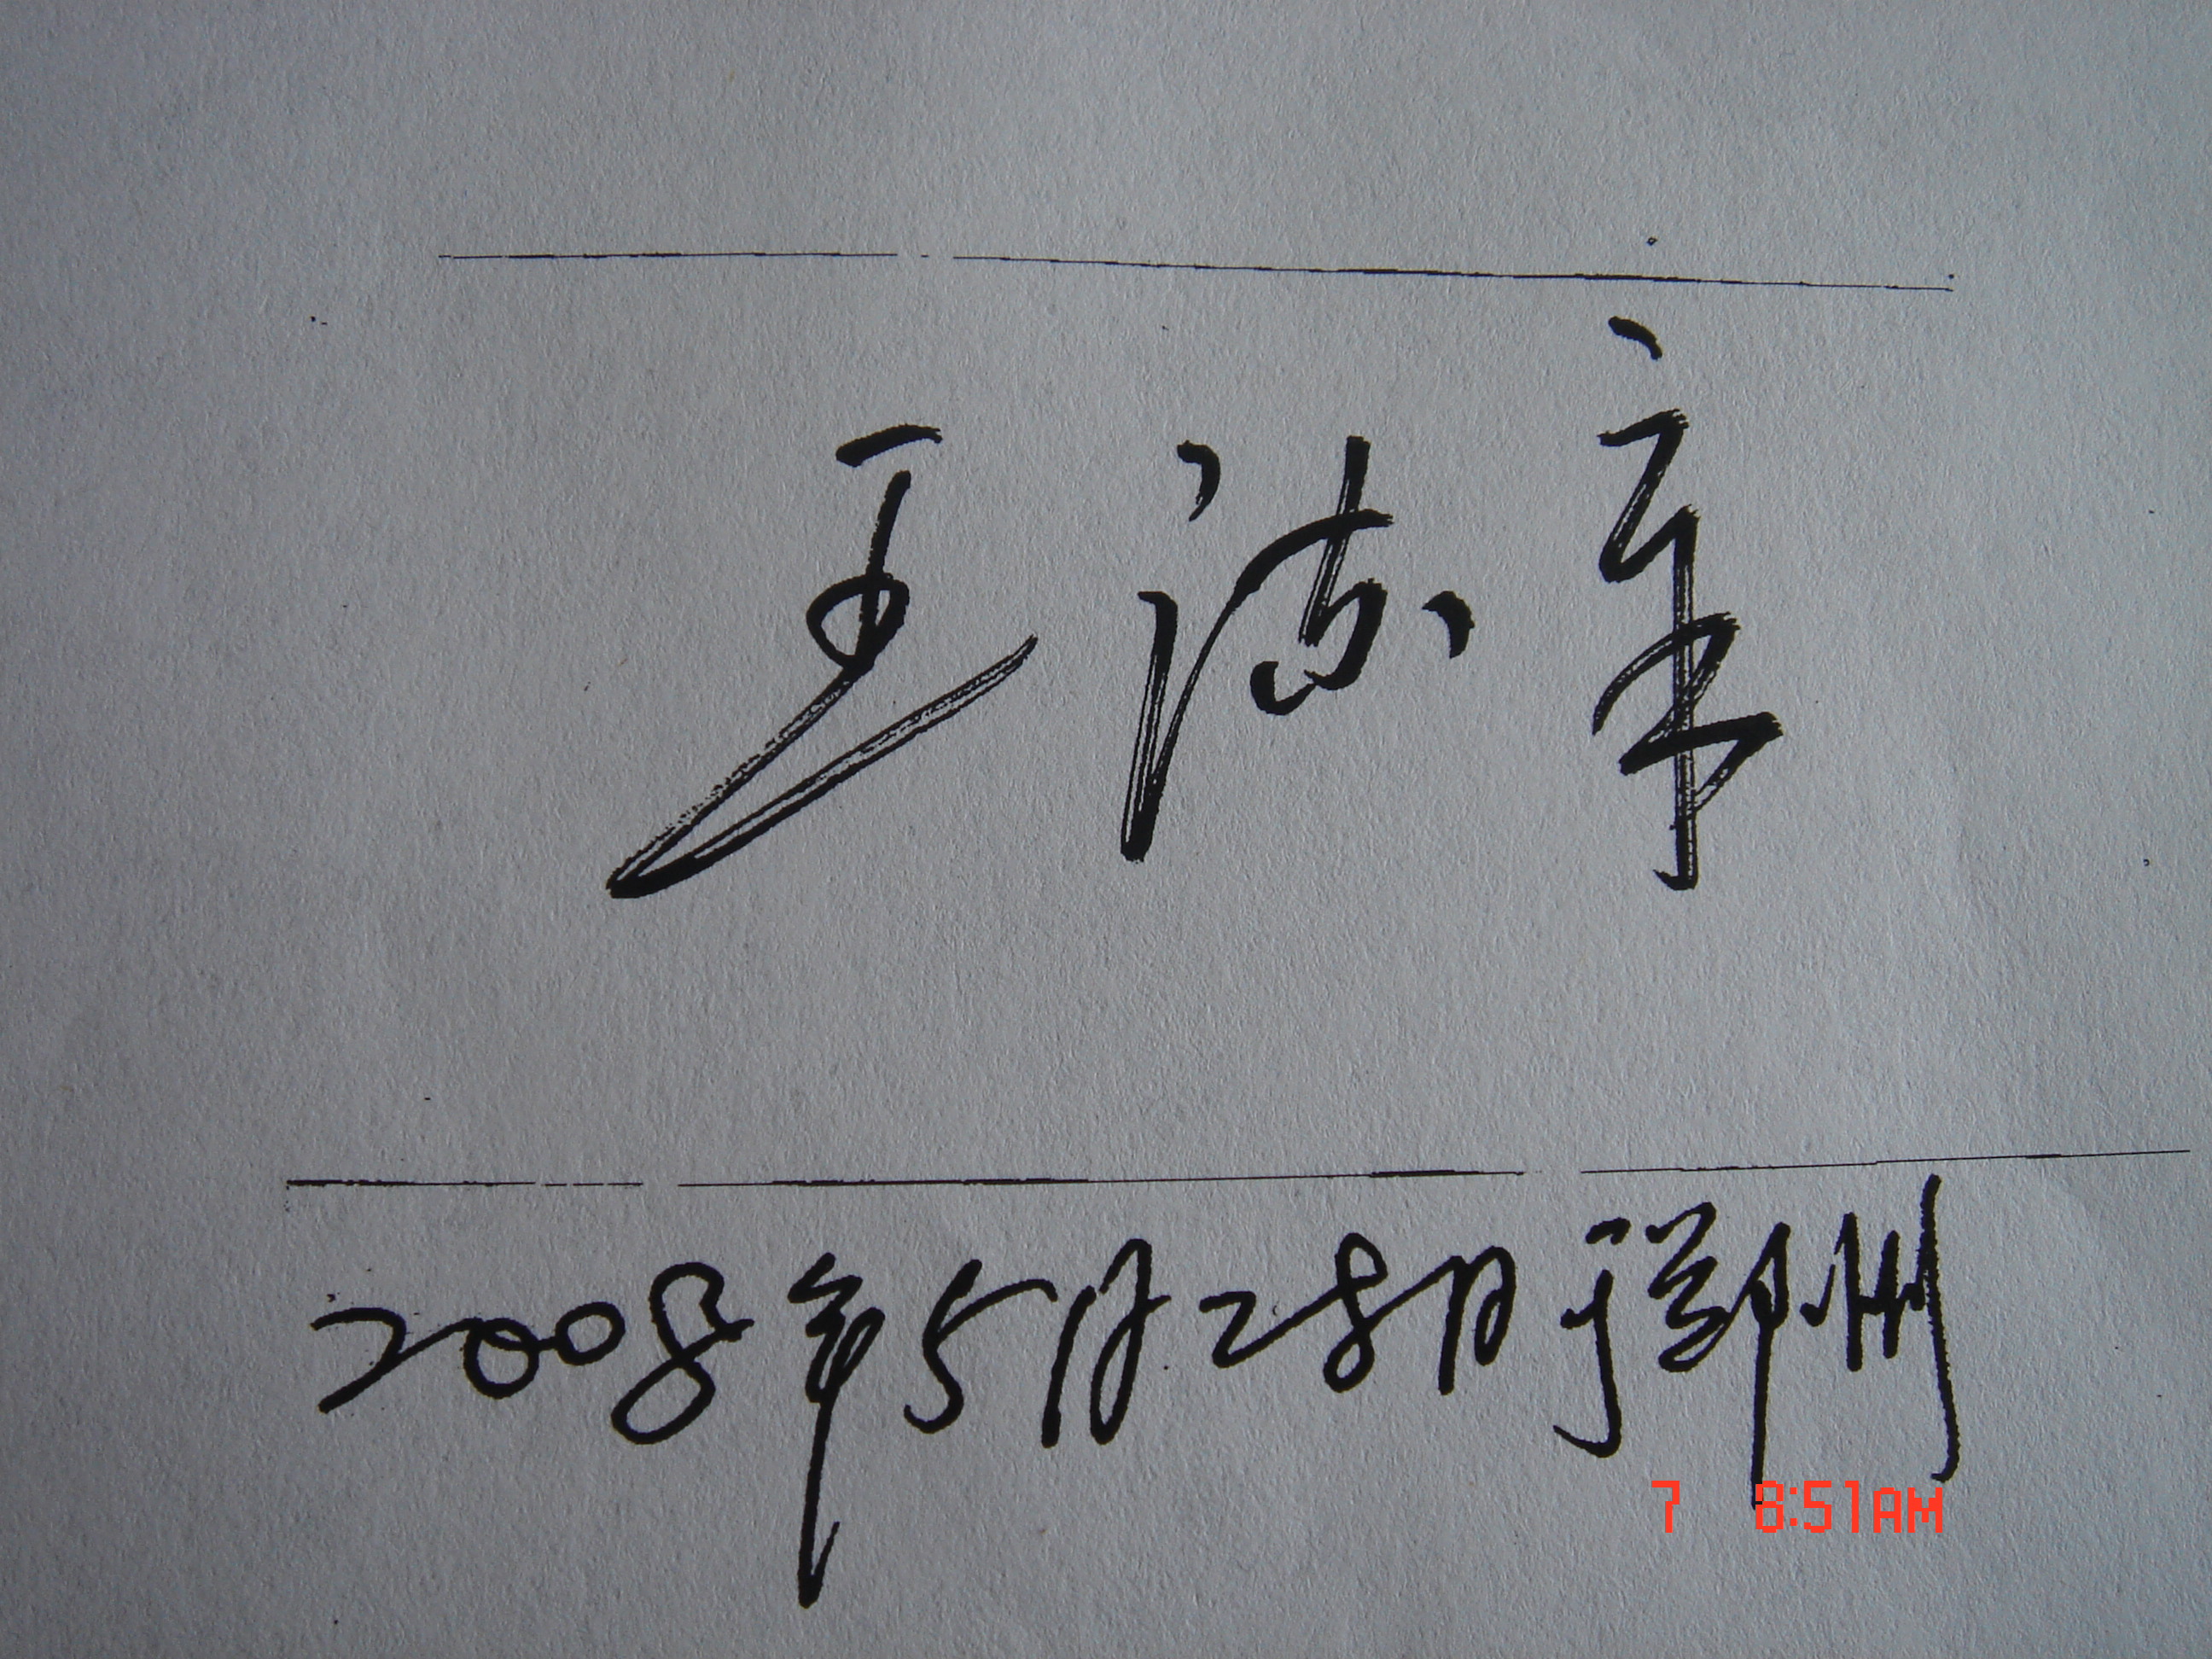 王海章
2008年5月28日于郑州
7 8:51AM